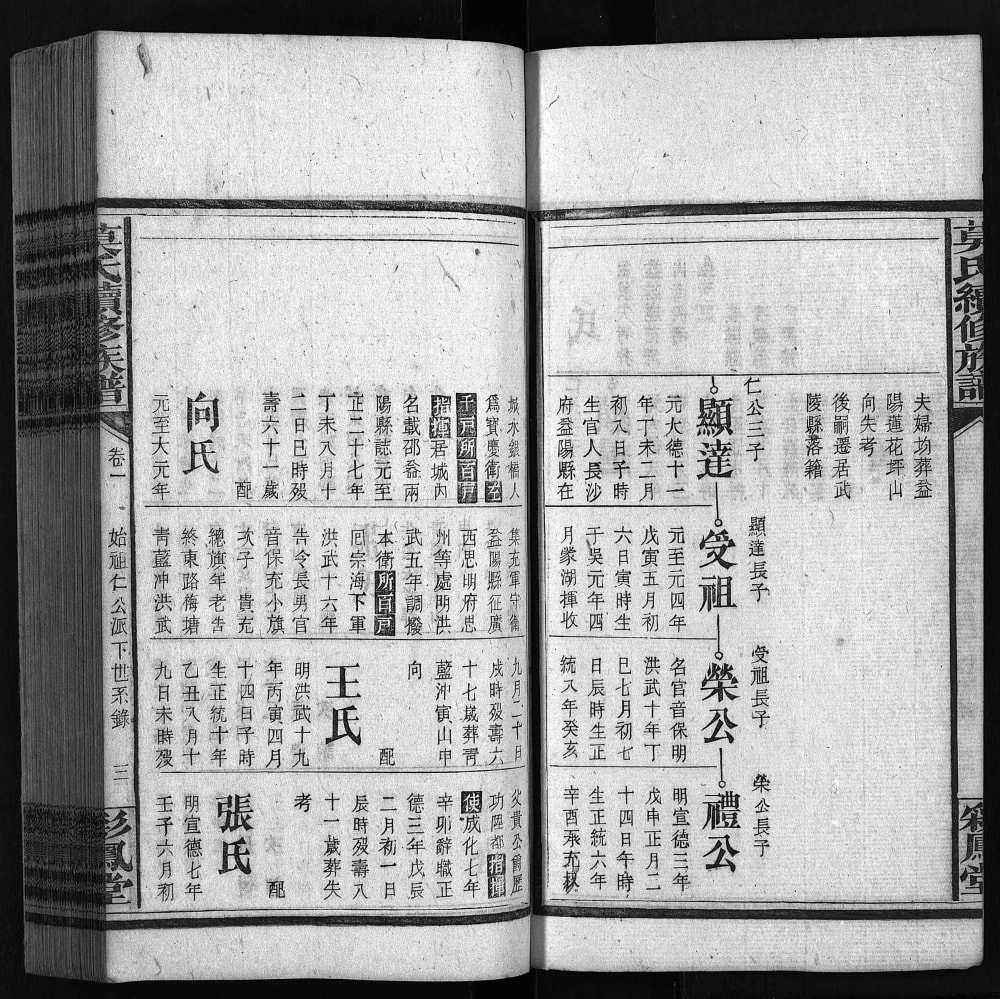 莫氏續修族譜
彩鳳堂
夫婦均葬益
陽蓮花坪山
向失考
後嗣遷居武
陵縣落籍
仁公三子
顯達
元大德十一
年丁未二月
初八日子時
生官人長沙
府益陽縣在
城水銀橋人
爲寶慶衛左
千戸所百戸
指揮居城内
名載邵益兩
陽縣誌元至
正二十七年
丁未八月十
二日巳時殁
壽六十一歲
配
向氏
元至大元年
顯達長子
受祖
元至元四年
戊寅五月初
六日寅時生
于吳元年四
月蒙湖揮收
集充軍守衛
益陽縣征廣
西思明府思
州等處明洪
武五年調撥
本衛所百戸
回宗海下軍
洪武十六年
告令長男官
音保充小旗
次子 貴充
總旗年老告
終東路梅塘
靑藍冲洪武
受祖長子
榮公
名官音保明
洪武十年丁
巳七月初七
日辰時生正
統八年癸亥
九月二十日
戌時殁壽六
十七歲葬靑
藍冲寅山申
向
配
王氏
明洪武十九
年丙寅四月
十四日子時
生正統十年
乙丑八月十
九日未時殁
榮公長子
禮公
明宣德三年
戊申正月二
十四日午時
生正統六年
辛酉承充叔
父貴公餉歷
功陞都指揮
使成化七年
辛卯辭職正
德三年戊辰
二月初一日
辰時殁壽八
十一歲葬失
考
配
張氏
明宣德七年
壬子六月初
莫氏續修族譜
卷一
始祖仁公派下世系錄
三
彩鳳堂